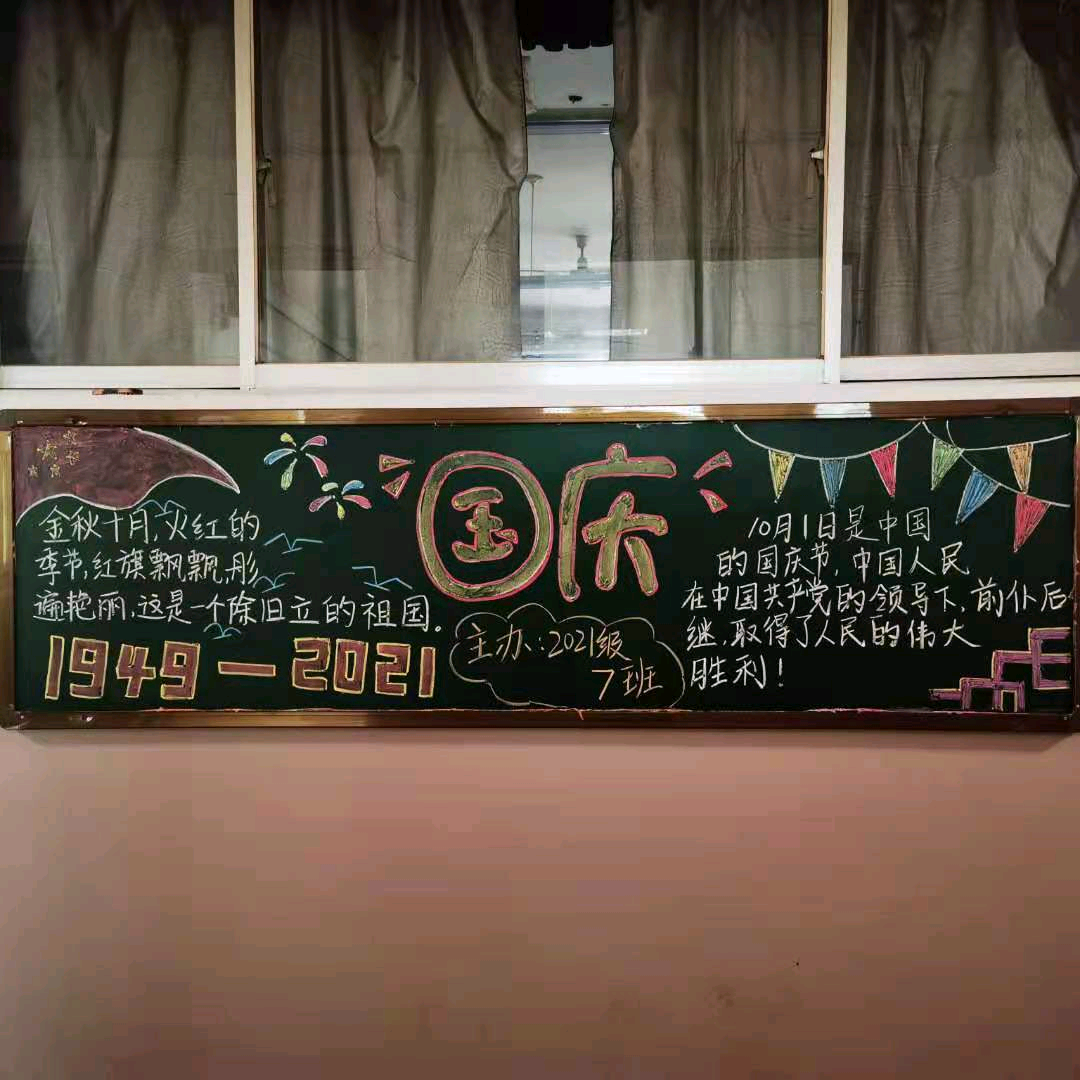 金秋十月,火红的
季节,红旗飘飘,彤
遍艳丽,这是一个除旧立的祖国。
1949—2021
国庆
主办:2021级
7班
10月1日是中国
的国庆节,中国人民
在中国共产党的领导下,前仆后
继,取得了人民的伟大
胜利!